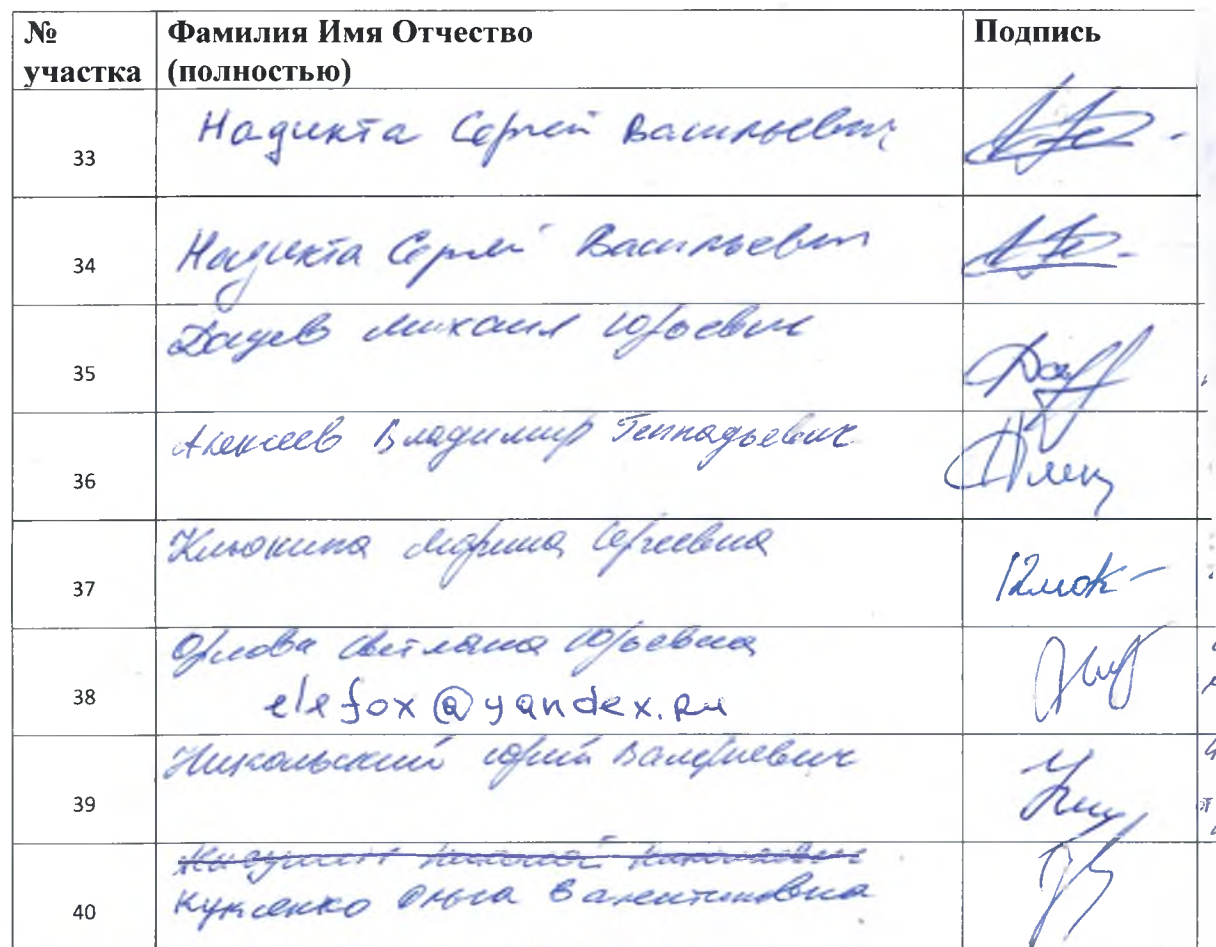 № участка Фамилия Имя Отчество (полностью) Подпись
33 Надикта Сергей Васильевич
34 Надикта Сергей Васильевич
35 Михаил Юрьевич
36 Алексеев Владимир Геннадьевич
37 Клюкина Марина Сергеевна
38 Орлова Светлана Юрьевна
elefox@yandex.ru
39 Никольский Юрий Валериевич
40
Ольга Валентиновна